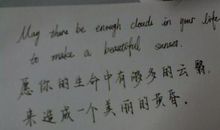 May there be enough clouds in your life
to make a beautiful sunset.
愿你的生命中有够多的云翳,
来造成一个美丽的黄昏。